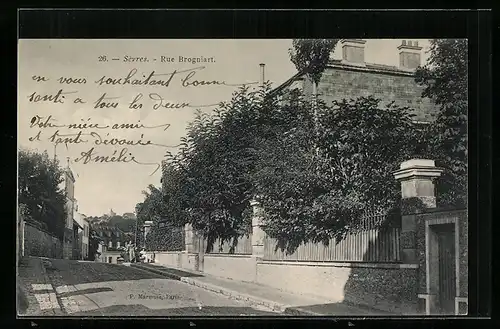 26. — Sèvres. - Rue Brogniart.
en vous souhaitant bonne
santé a tous les deux
Votre nièce amie
et tante dévouée
Amélie